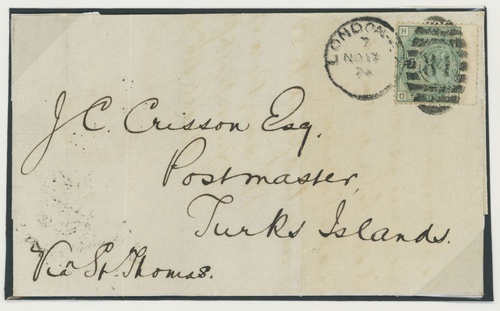 LONDON
7
NO 17
H
84
J C. Crisson Esq.
Postmaster,
Turks Islands.
Via St. Thomas.